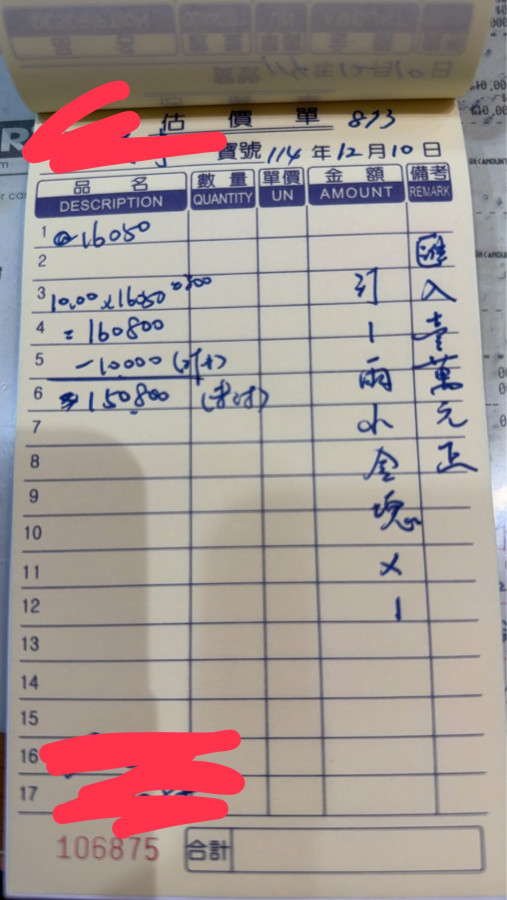 估價單 873
寶號 114年12月10日
品名 數量 單價 金額 備考
DESCRIPTION QUANTITY UN AMOUNT REMARK
1 @16050
2
3 10.00 x 16050 +300
4 = 160800
5 -10,000 (訂)
6 150,800 (未付)
7
8
9
10
11
12
13
14
15
16
17
匯入壹萬元正
訂1兩小金塊x1
106875 合計